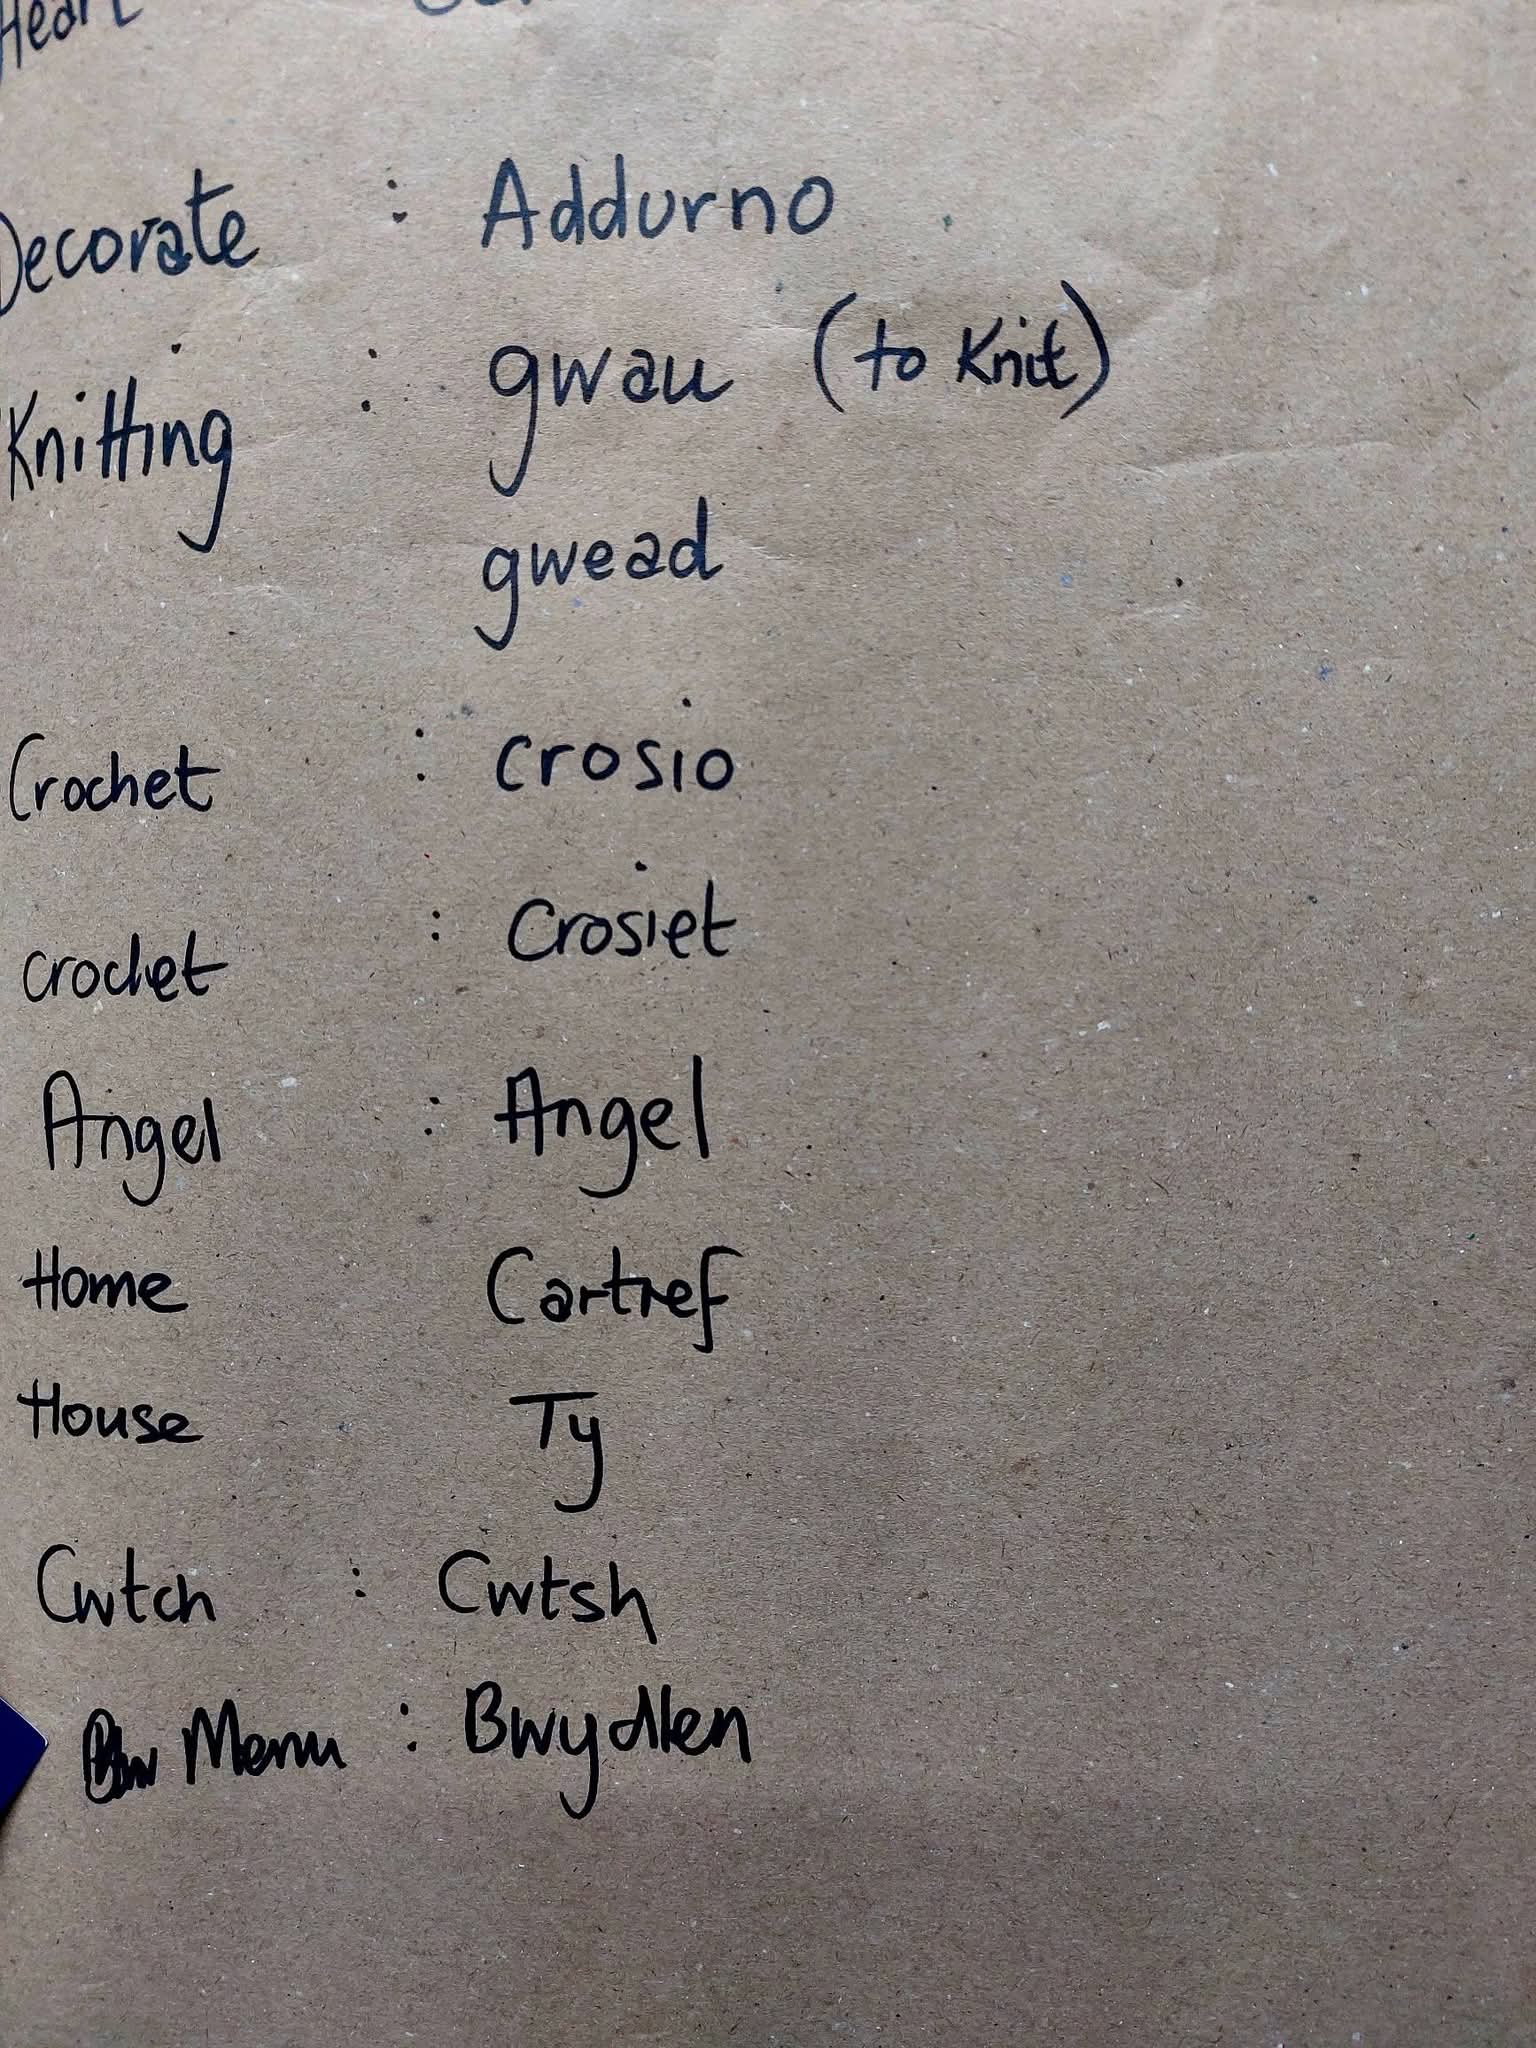 Heart
Decorate : Addurno
Knitting : gwau (to Knit)
gwead
Crochet : crosio
crochet : Crosiet
Angel : Angel
Home Cartref
House Ty
Cwtch : Cwtsh
Menu : Bwydlen